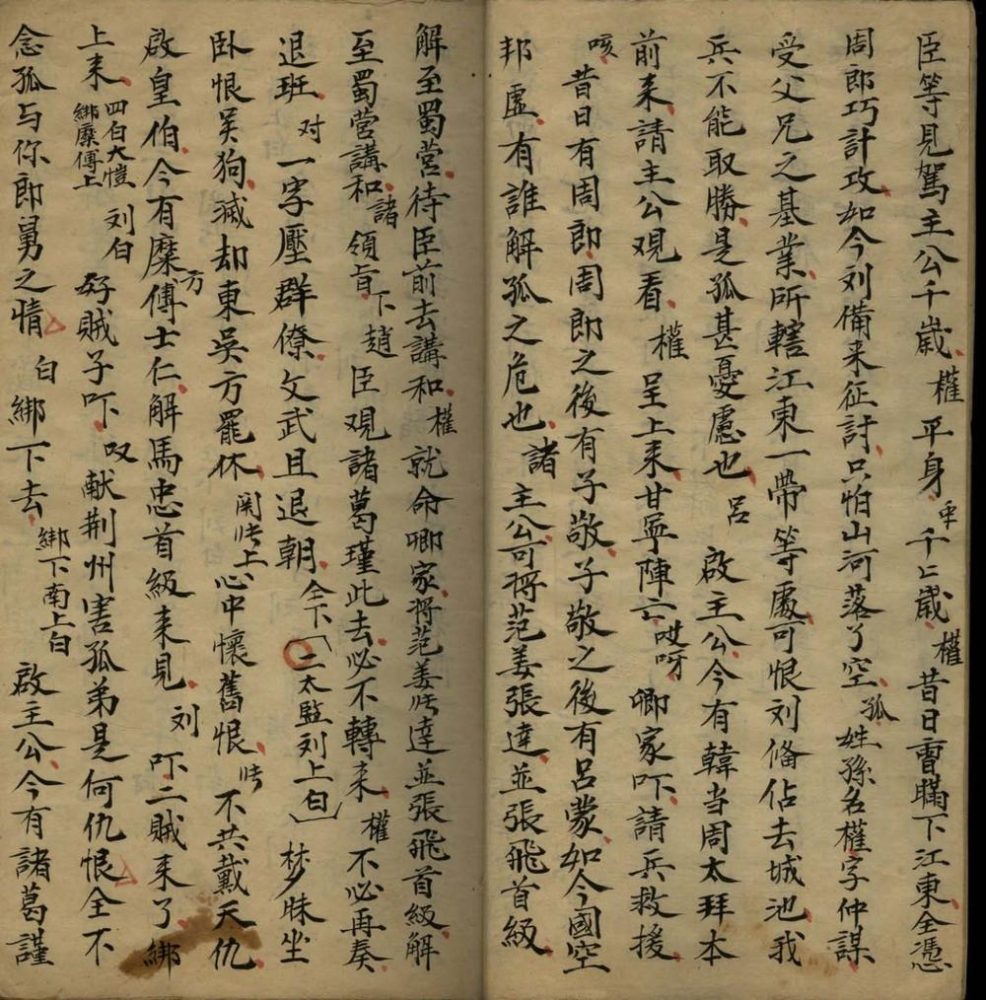 臣等見駕主公千歲權平身众千〻歲權昔日曹瞞下江東全憑
周郎巧計攻如今刘備来征討只怕山河落了空孤姓孫名權字仲謀
受父兄之基業所轄江東一帶等處可恨刘俻佔去城池我
兵不能取勝是孤甚憂慮也呂啟主公今有韓当周太拜本
前来請主公观看權呈上来甘寧陣亡哎呀卿家吓請兵救援
咳昔日有周郎周郎之後有子敬子敬之後有呂蒙如今國空
邦虚有誰解孤之危也諸主公可将范姜張達並張飛首級
解至蜀营待臣前去講和權就命卿家将范姜张達並張飛首級解
至蜀营講和諸領旨下趙臣观諸葛瑾此去必不轉来權不必再奏
退班对一字壓群僚文武且退朝仝下二太監刘上白梦昧坐
卧恨吴狗滅却東吴方罷休関张上心中懷舊恨张不共戴天仇
啟皇伯今有糜方傅士仁解馬忠首級来見刘吓二賊来了綁
上来四白大愷綁糜傅上刘白好賊子吓叹献荆州害孤弟是何仇恨全不
念孤与你郎舅之情白綁下去綁下南上白啟主公今有諸葛謹